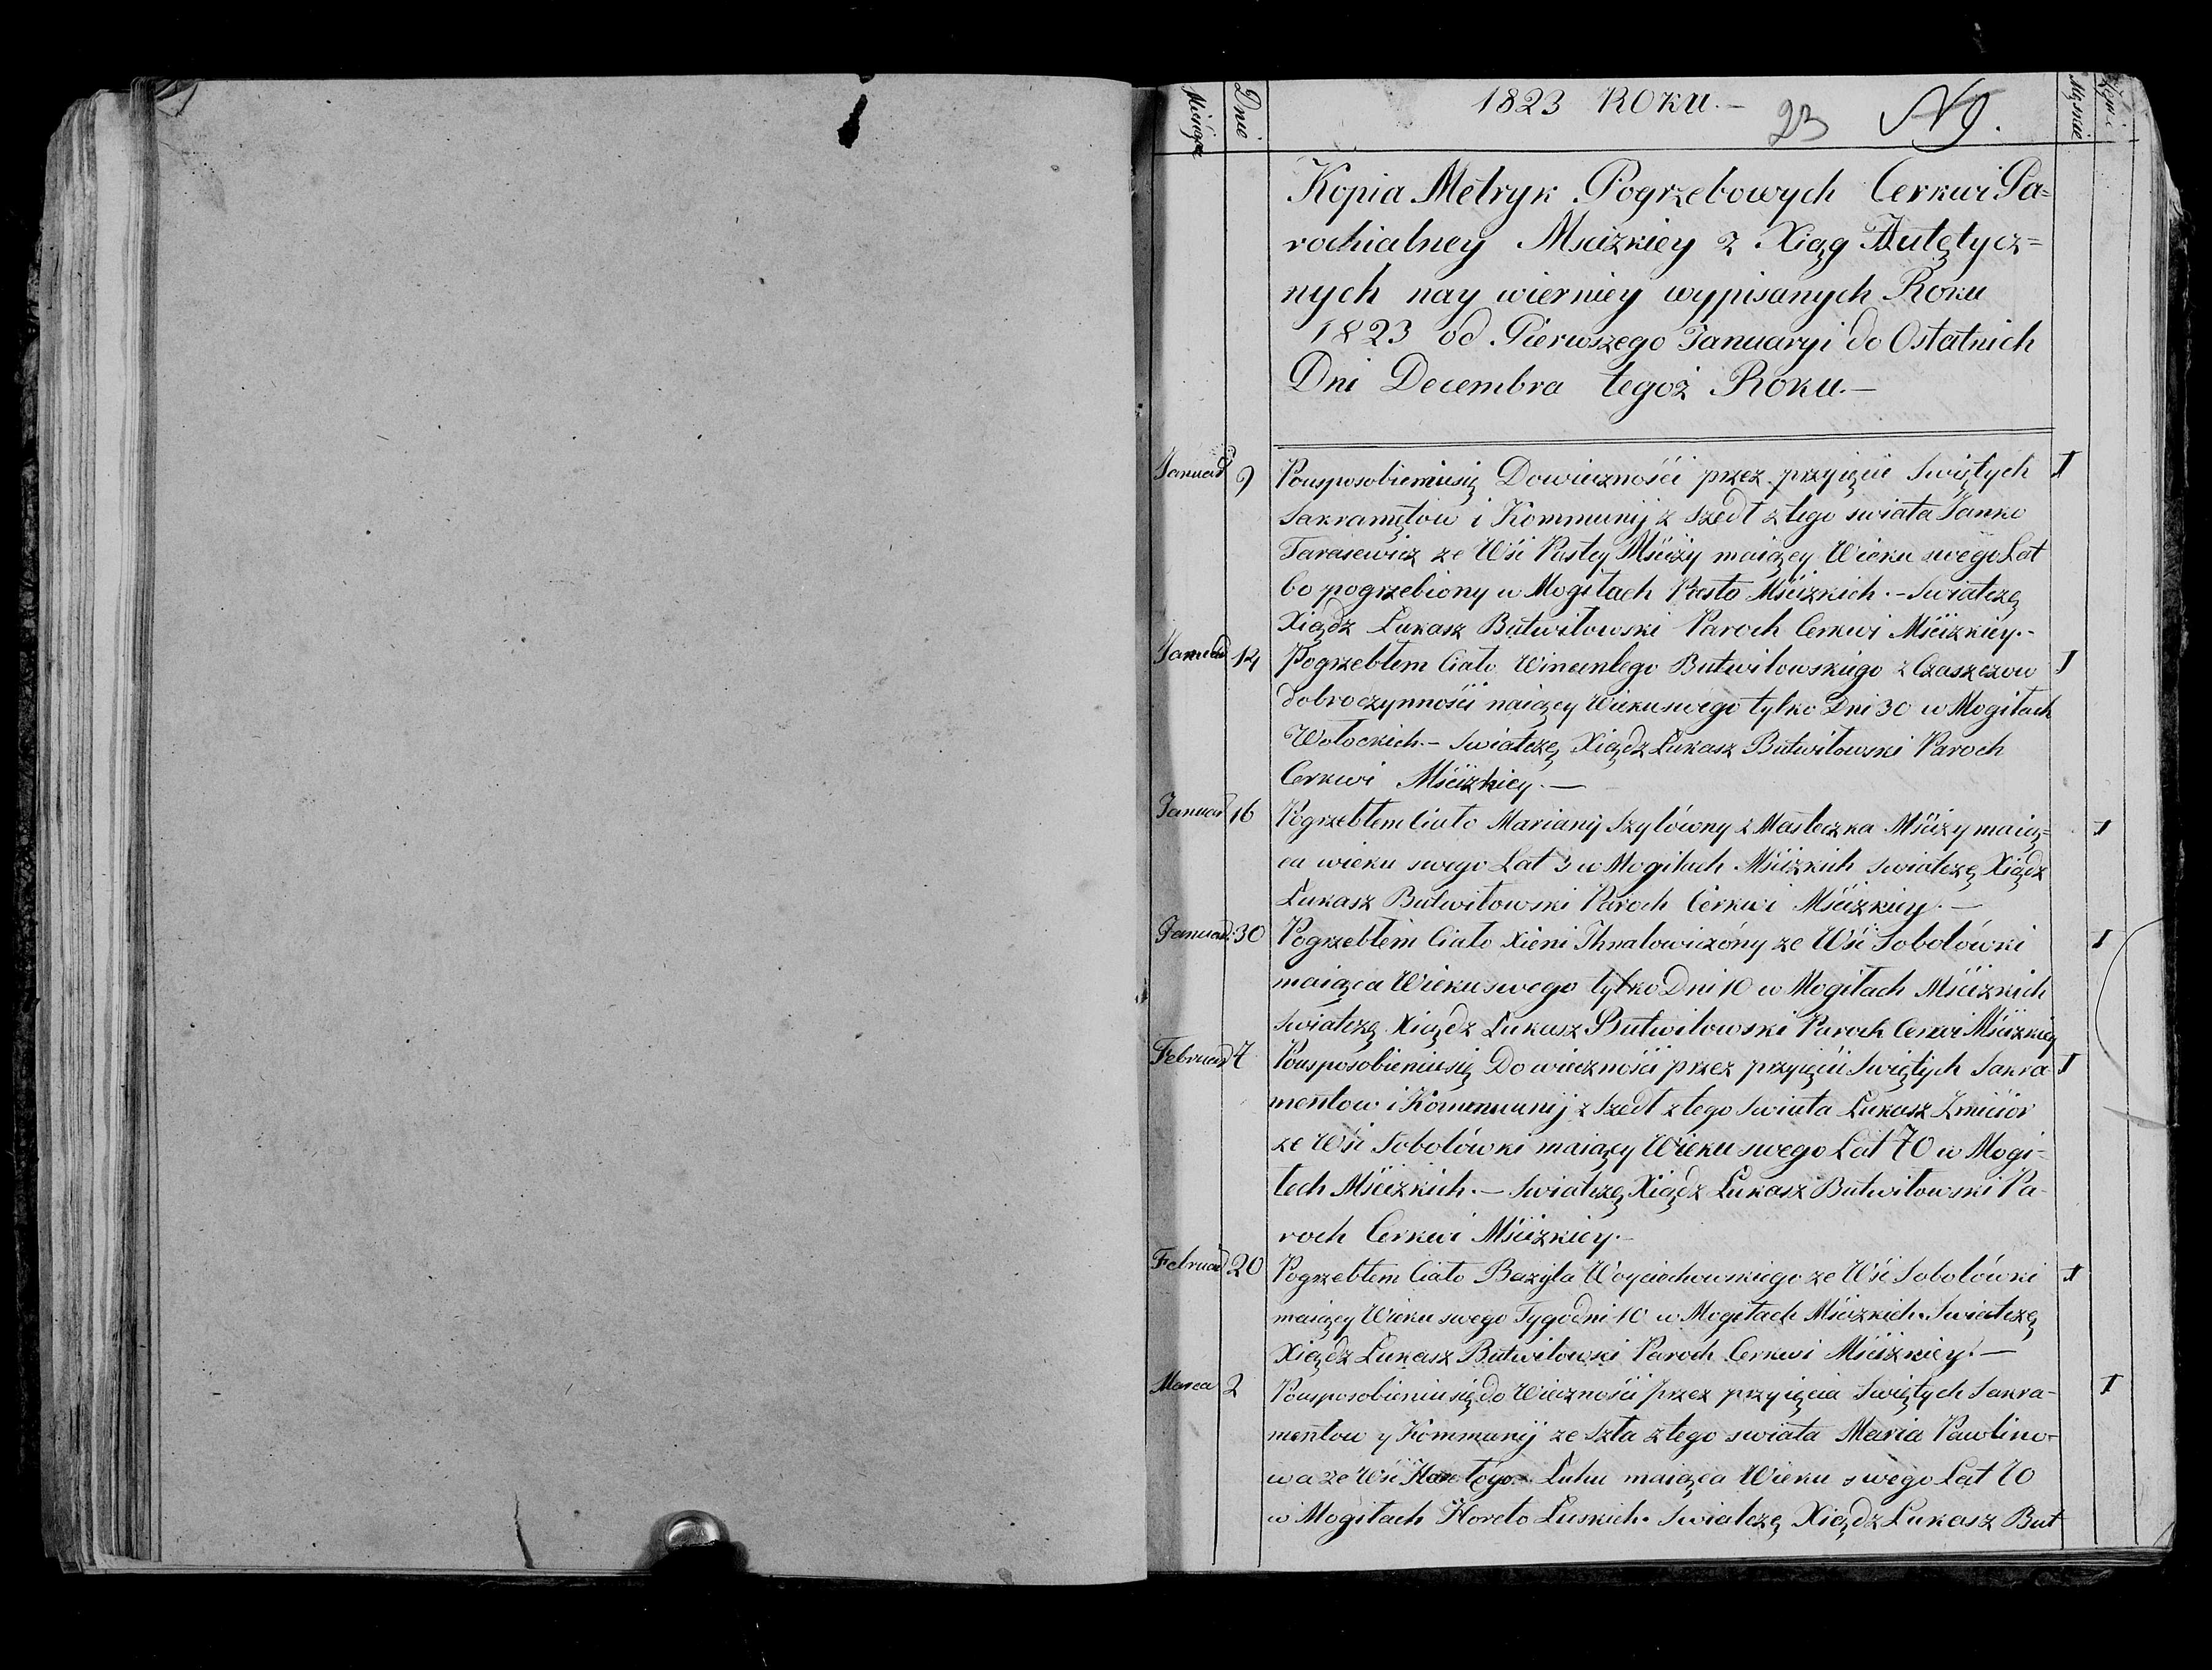 Miesiące
Dnie
1823 ROKU.-
23
N 9.
Męskie
Żeńs
Kopia Metryk Pogrzebowych Cerkwi Pa=
rochialney Mscizkiey z Xiąg Autętycz=
nych nay wierniey wypisanych Roku
1823 od Pierwszego Januaryi do Ostatnich
Dni Decembra tegoż Roku.-
Januad 9 Pousposobieniusię Dowiecznośći przez przyięcie Swiętych I
Sakramętow i Kommunij z szedł z tego swiata Janko
Tarasewicz ze Wśi Pustey Mśćiży maiącey Wieku swego Lat
60 pogrzebiony w Mogiłach Pusto Mścizkich.- Swiatczę
Xiądz Łukasz Butwiłowski Paroch Cerkwi Mśćizkiey.-
Januad 14 Pogrzebłem Ciało Wincentego Butwiłowskiego z Czaszczow I
dobroczynnośći maiący Wieku swego tylko Dni 30 w Mogiłach
Wołockich.- Swiatczę Xiądz Łukasz Butwiłowski Paroch
Cerkwi Mśćizkiey.-
Januad 16 Pogrzebłem Ciało Marianÿ Szyłówny z Masteczka Mśćiży maią= I
ca wieku swego Lat 3 w Mogiłach Mśćizkich Swiatczę Xiądz
Łukasz Butwiłowski Paroch Cerkwi Mśćizkiey.-
Januad 30 Pogrzebłem Ciało Xieni Ihnatowiczóny ze Wśi Sobolówki I
maiąca Wieku swego tylko Dni 10 w Mogiłach Mśćizkich
Swiatczę Xiądz Łukasz Butwiłowski Paroch Cerkwi Mśćizkiey
Februad 7 Pousposobieniusię Dowiecznośći przez przyięćie Swiętych Sakra- I
mentow i Kommunij z szedł z tego Swiata Łukasz Zmićior
ze Wśi Sobolówki maiący Wieku swego Lat 70 w Mogi-
łach Mśćizkich.- Swiatczę Xiądz Łukasz Butwiłowski Pa-
roch Cerkwi Mśćizkiey.-
Februad 20 Pogrzebłem Ciało Bazyla Woyciechowskiego ze Wśi Sobolówki I
maiący Wieku swego Tygodni 10 w Mogiłach Mśćizkich. Swiatczę
Xiądz Łukasz Butwiłowski Paroch Cerkwi Mśćizkiey.-
Marca 2 Pousposobieniu się do Wiecznośći przez przyięcia Swiętych Sakra- I
mentow y Kommunij ze Szła z tego swiata Maria Pawlino-
wa ze Wśi Łuhu maiąca Wieku swego Lat 70
w Mogiłach Horeło Łuskich. Swiatczę Xiądz Łukasz But